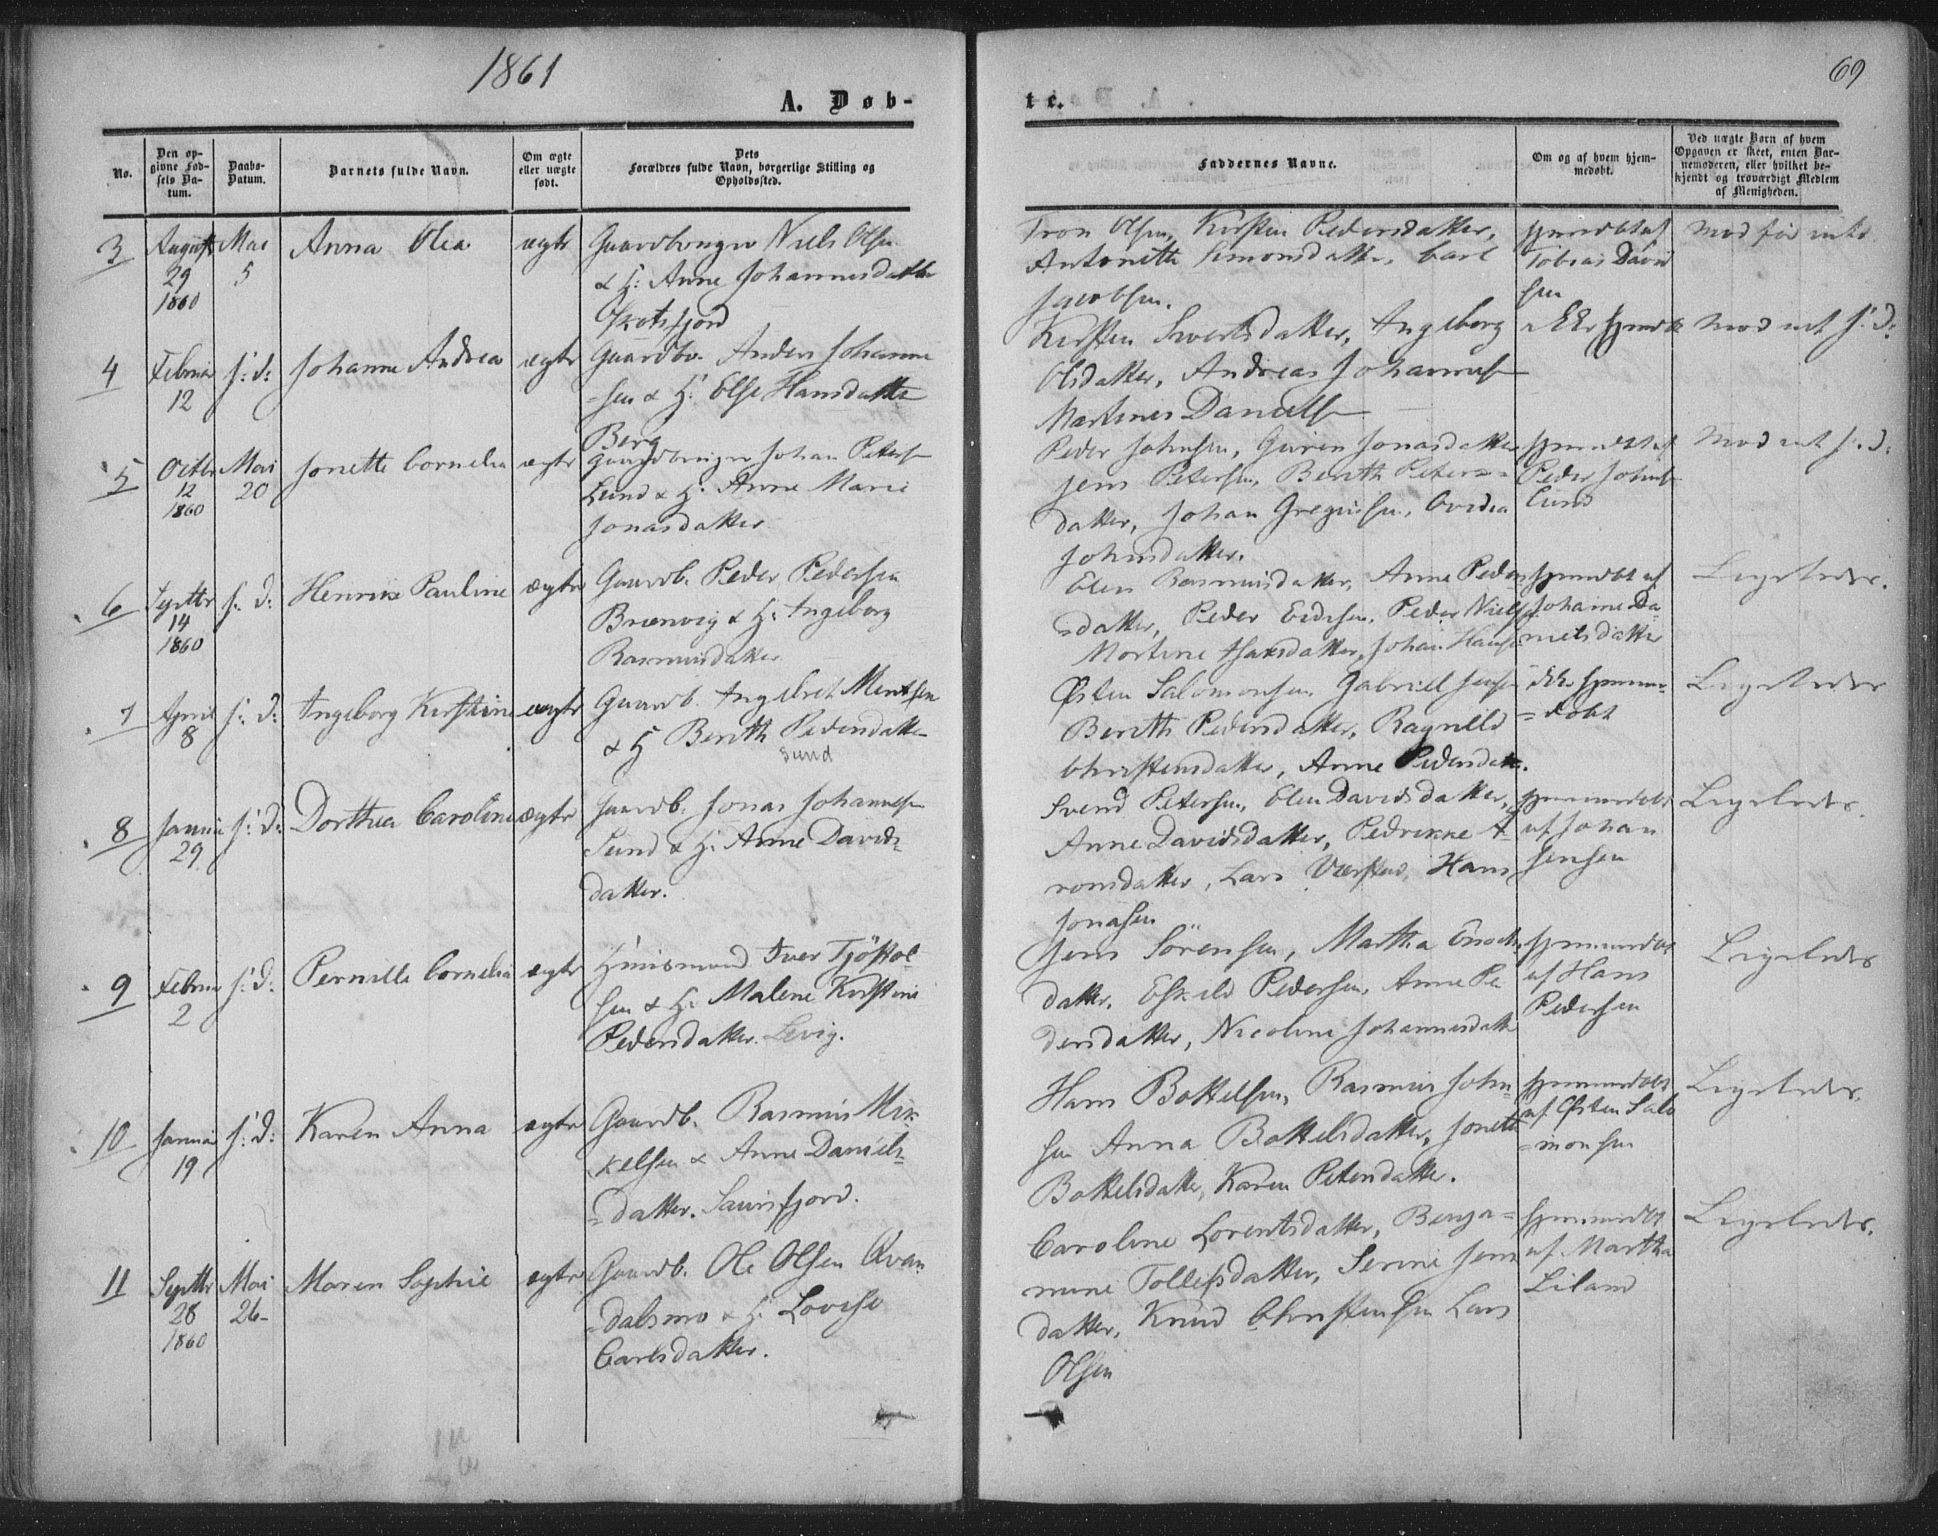 1861
69
A. Døb-
te.
No.
Den opgivne Fødsels Datum.
Daabs-Datum.
Barnets fulde Navn.
Om ægte eller uægte født.
Dets Forældres fulde Navn, borgerlige Stilling og Opholdssted.
Faddernes Navne.
Om og af hvem hjemmedøbt.
Ved uægte Børn af hvem Opgaven er skeet, enten Barnemoderen, eller hvilket bekjendt og troværdigt Medlem af Menigheden.
3
August 29 1860
Mai 5
Anna Olea
ægte
Gaardbruger Niels Olsen
& H: Anne Johannesdatter
Skotsfjord
Tron Olsen, Kirsten Pedersdatter,
Antonette Simonsdatter, Carl
Jacobsen.
hjemdbt af
Tobias David
sen
4
Februar 12
s: d:
Johanne Andrea
ægte
Gaardbr. Anders Johanne
=sen & H: Else Hansdatter
Berg
Kirsten Sivertsdatter, Ingeborg
Olsdatter, Andreas Johannes
Martines Daniels
5
Octbr 12 1860
Mai 20
Jonette Cornelia
ægte
Gaardbruger Johan Peters
Lund & H: Anne Marie
Jonasdatter
Peder Johnsen, Guren Jonasdatter
Jens Petersen, Berith Peters=
datter, Johan Gregussen, Ovedia
Johnsdatter.
hjemdbt af
Peder Johns
Lund
6
Septbr 14 1860
s: d:
Henrikke Pauline
ægte
Gaardb. Peder Pedersen
Brænvig & H: Ingeborg
Rasmusdatter
Elen Rasmusdatter, Anne Peders
=datter, Peder Pedersen, Peder Niels
Martine Isaksdatter, Johan Hans
hjemdbt af
Johanne Da-
nielsdatter
Ligeledes.
7
April 8
s: d:
Ingeborg Kirstine
ægte
Gaardb. Ingebret Mentsen
& H Berith Pedersdatter
Sund
Østen Salomonsen, Gabriel Jensen
Berith Pedersdatter, Ragnild
Christensdatter, Anne Pedersdatter.
Ikke hjemme=
=døbt
Ligeledes
8
Januar 29
s: d:
Dorthea Caroline
ægte
Gaardb. Jonas Johannesen
Sund & H: Anne Davids=
datter.
Svend Petersen, Elen Davidsdatter,
Anne Davidsdatter, Pedrikke A-
ronsdatter, Lars Værsted, Hans
Jonasen
hjemmedøbt
af Johan
Jensen
Ligeledes.
9
Februar 2
s: d:
Pernille Cornelia
ægte
Huusmand Iver Tjöstol
sen & H: Malene Kirstine
Pedersdatter. Levig.
Jens Sörensen, Martha Enochs
datter, Eskild Pedersen, Anne Pe
dersdatter, Nicoline Johannesdatter
hjemmedøbt
af Hans
Pedersen
Ligeledes
10
Januar 19
s: d:
Karen Anna
ægte
Gaardb. Rasmus Mik
kelsen & Anne Daniels=
=datter. Saursfjord.
Hans Bottelsen, Rasmus John
sen Anna Bottelsdatter, Jonette
Bottelsdatter, Karen Petersdatter.
hjemmedøbt
af Østen Salo
=monsen
Ligeledes.
11
Septbr 28 1860
Mai 26
Maren Sophie
ægte
Gaardb. Ole Olsen Qvan
=dalsmo & H: Lovise
Carlsdatter.
Caroline Lorentsdatter, Benja=
mine Tollefsdatter, Serine Jens
datter, Knud Christensen Lars
Olsen
hjemmedbt
af Martha
Leland
Ligeledes.